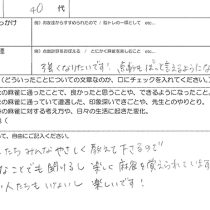 40 代
っかけ
例）お友だちからすすめられたので ・ 脳トレの一環として etc…
例）点数計算を教えてほしい ／ とにかく麻雀を楽しむこと etc…
強くなりたいです！ 点数もぱっと言えるようになり
（どういったことについての文章なのか、口にチェックを入れてください。）
の麻雀に通ったことで、良かったと思うことや、できるようになったこと。
の麻雀に通っていて遭遇した、印象深いできごとや、先生とのやりとり。
時の麻雀に対する考え方や、日々の生活に起きた変化。
く（
て、自由にご記入ください。
したち みんな やさしく 教えて下さるので
なことでも 聞けるし 楽しく 麻雀を覚えられています
人たちも いい人いし 楽しいです！